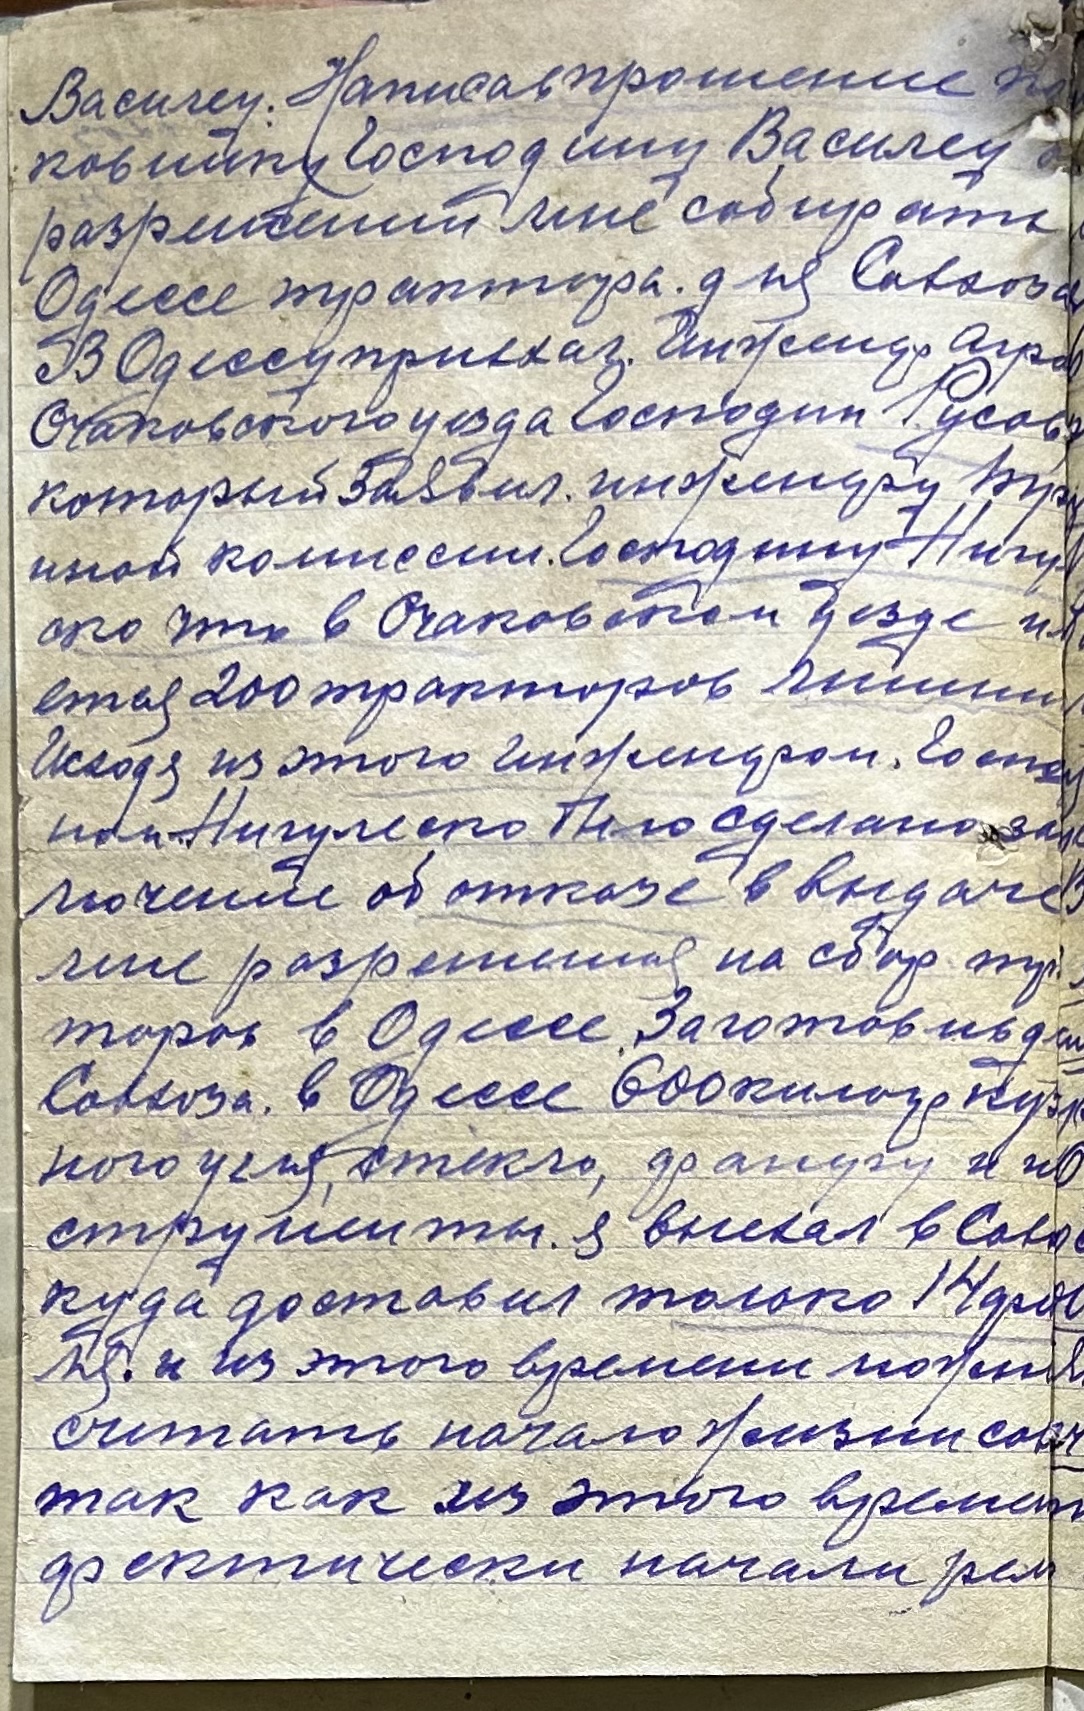 Василеу. Написав прошение по
ковнику Господину Василеу о
разрешении мне собирать
Одессе трактора. для Совхоза
В Одессу приехал. Инженер Агро
Очаковского уезда Господин Русов
который заявил. инженеру
иной комиссии. Господину Нигул
ско что в Очаковском уезде им
ется 200 тракторов лишни
Исходя из этого инженером. Господ
ном Нигулеско было сделано зак
лючение об отказе в выдаче
мне разрешения на сбор трак
торов в Одессе. Заготовив для
Совхоза. в Одессе 600 килогр кузн
ного угля, стекло, фанеру и ин
струменты. я выехал в Совхоз
куда доставил только 14 февр
ля. и из этого времени можн
считать начало жизни совх
так как из этого времен
фектически начали рем